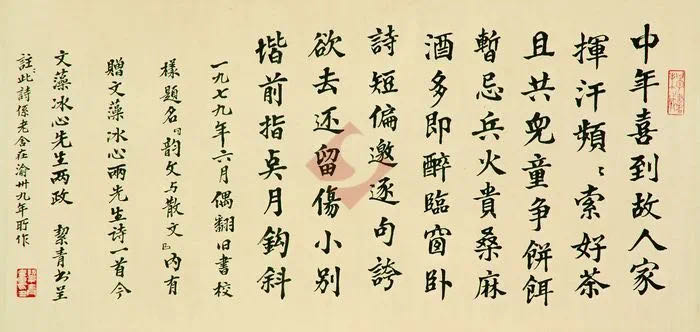 中年喜到故人家
揮汗頻〻索好茶
且共兒童争餅餌
暫忘兵火貴桑麻
酒多即醉臨窗卧
詩短偏邀逐句誇
欲去还留傷小别
堦前指奌月鈎斜
一九七九年六月偶翻旧書校
樣題名「韵文与散文」内有
贈文藻冰心兩先生詩一首今
文藻冰心先生两政 絜青书呈
註:此詩係老舍在渝卅九年所作